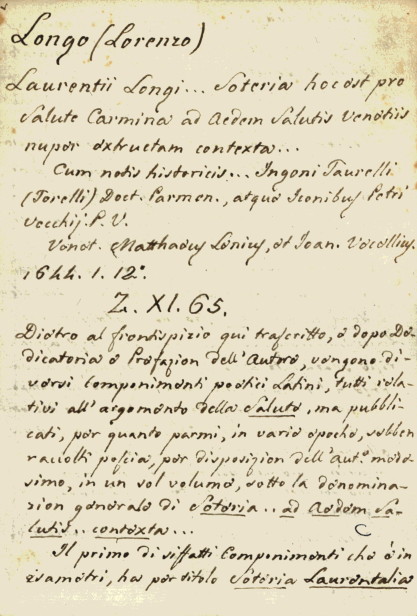 Longo (Lorenzo)
Laurentii Longi... Soteria hoc est pro
Salute Carmina ad Aedem Salutis Venetiis
nuper extructam contexta...
Cum notis historicis... Ingoni Taurelli
(Torelli) Doct. Parmen., atque Iconibus Petri
Vecchij P. V.
Venet. Matthaeus Lenius, et Ioan. Vecellius.
1644. 1. 12°.
Z. XI. 65.
Dietro al frontispizio qui trascritto, e dopo De-
dicatoria e Prefazion dell'Autore, vengono di-
versi Componimenti poetici Latini, tutti rela-
tivi all'argomento della Salute, ma pubbli-
cati, per quanto parmi, in varie epoche, sebben
raccolti poscia, per disposizion dell'Autᵉ mede-
simo, in un sol volume, sotto la denomina-
zion generale di Soteria.. ad Aedem Sa-
lutis.. contexta...
Il primo di siffatti Componimenti che è in
esametri, ha per titolo Soteria Laurentalia